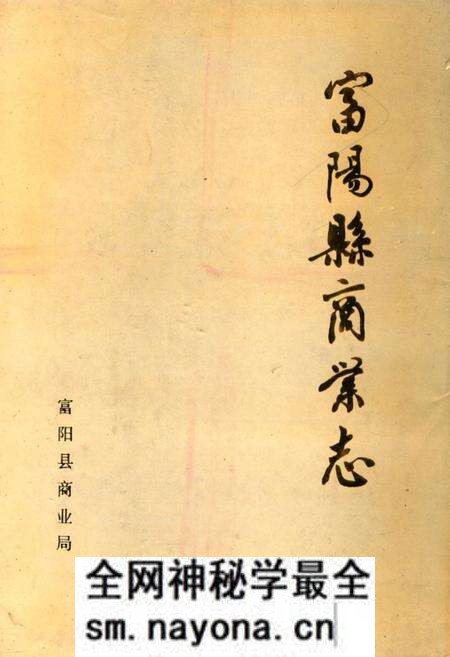 富陽縣商業志
富阳县商业局
全网神秘学最全
sm.nayona.cn